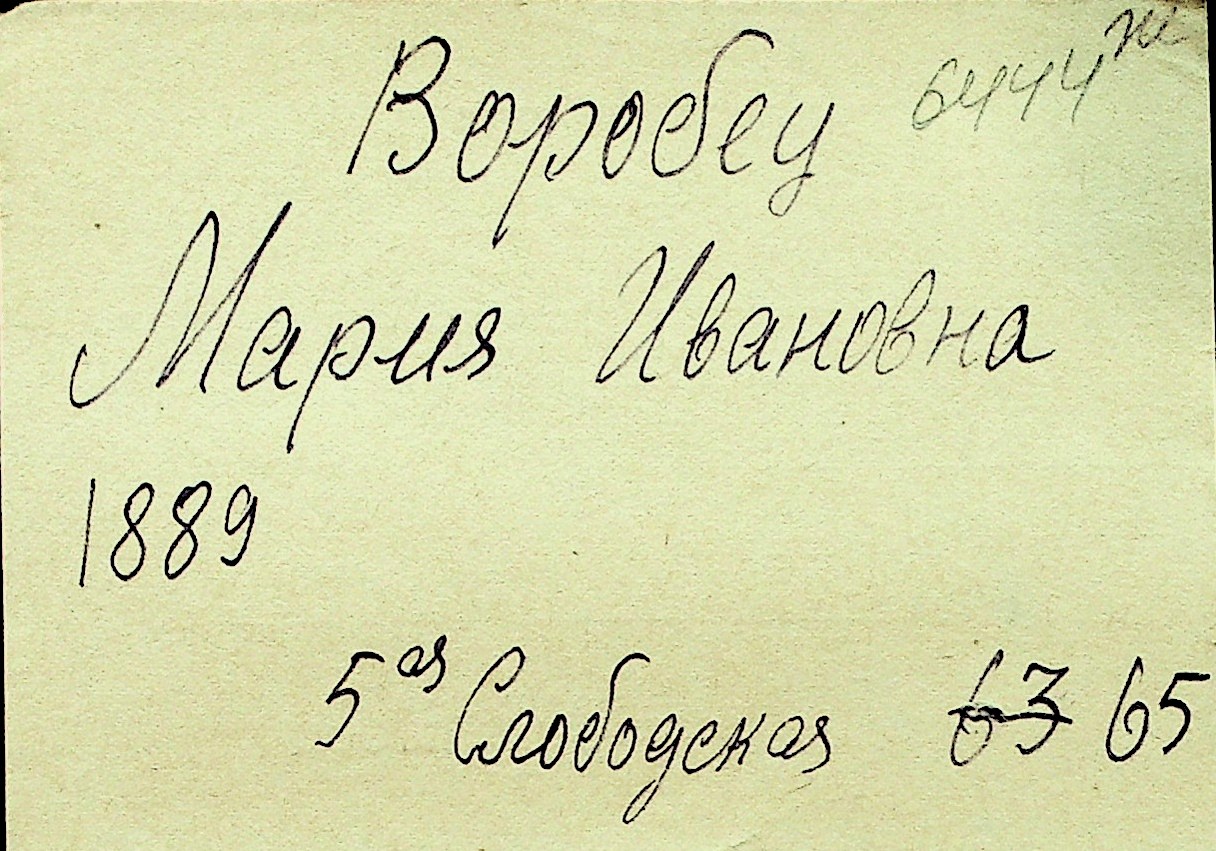 Воробец 6444 ж
Мария Ивановна
1889
5ая Слободская 63 65